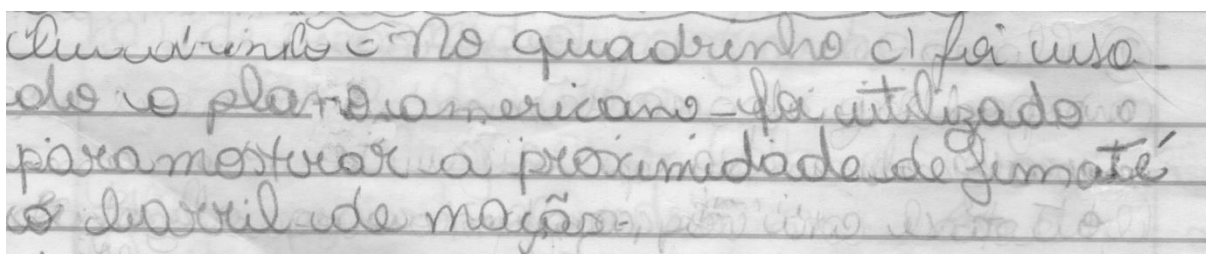 Quadrinho = No quadrinho c) foi usa-
do o plano americano - foi utilizado
para mostrar a proximidade de Jim até
o barril de mação.